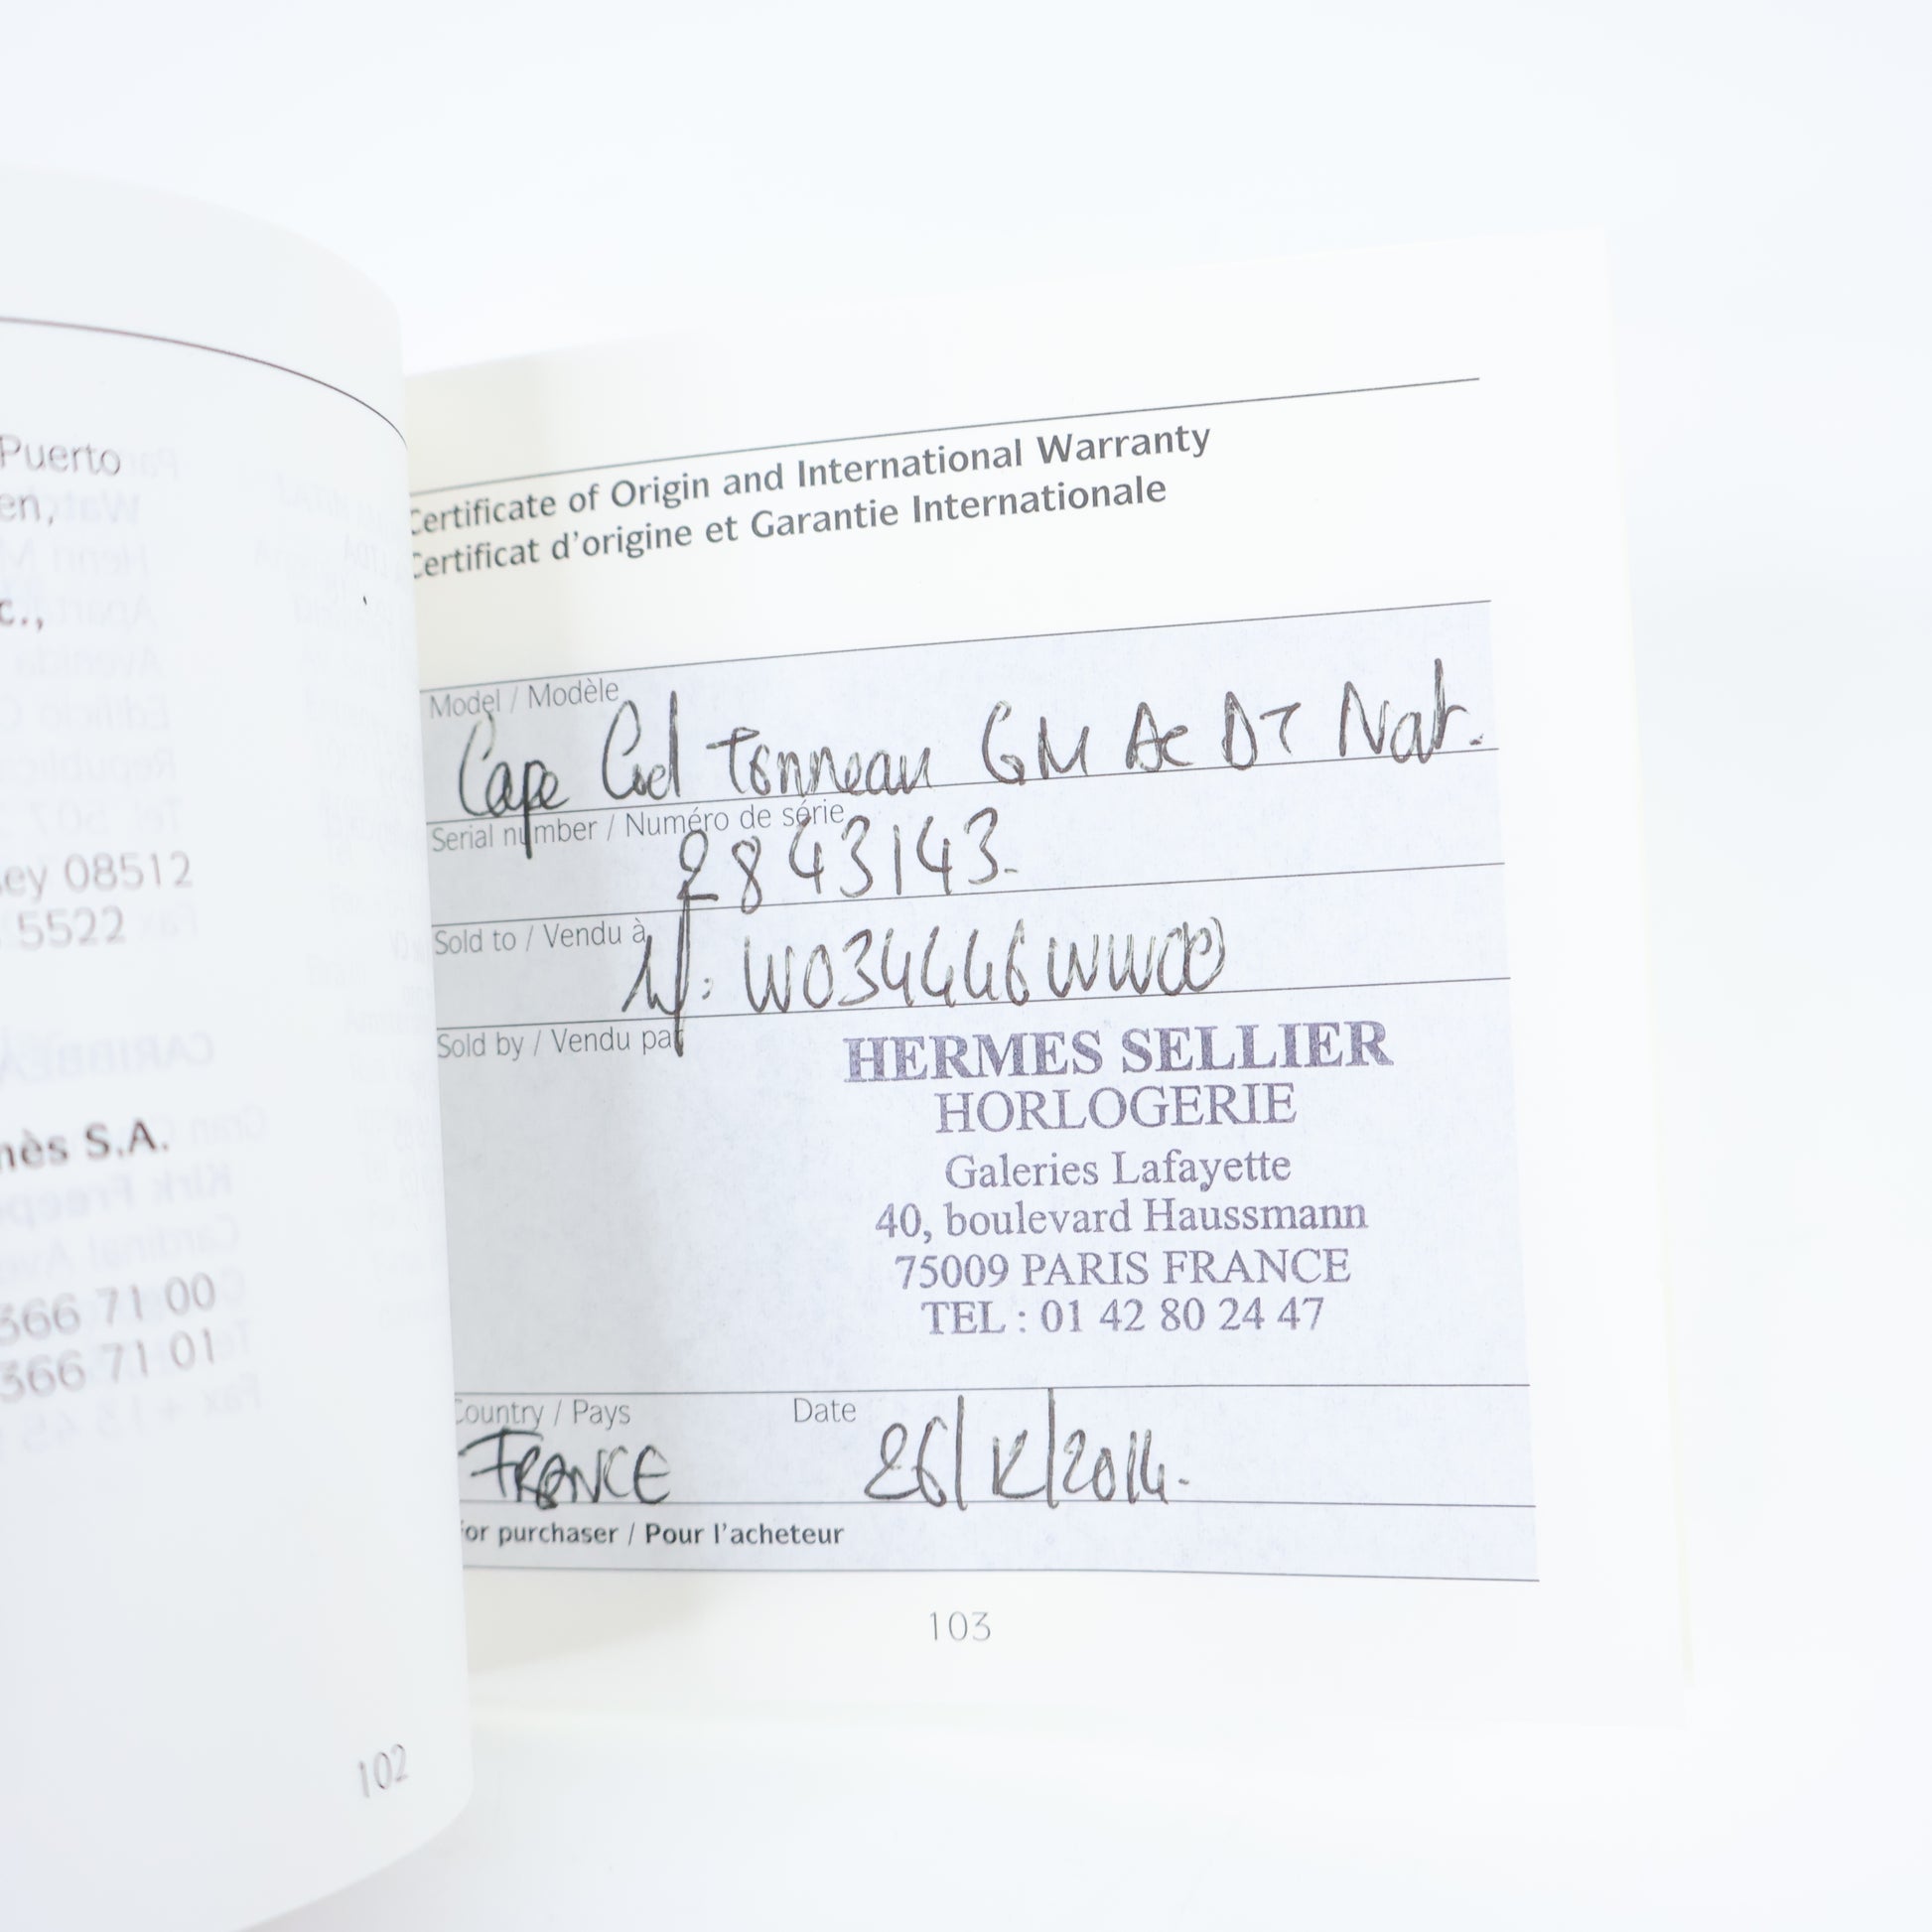 Puerto
en,
c.,
ey 08512
5522
nès S.A.
366 71 00
366 71 01
102
Certificate of Origin and International Warranty
Certificat d'origine et Garantie Internationale
Model / Modèle
Cape Cod Tonneau GM Ac DT Nat.
Serial number / Numéro de série
2843143.
Sold to / Vendu à
W034446WW00
Sold by / Vendu par
HERMES SELLIER
HORLOGERIE
Galeries Lafayette
40, boulevard Haussmann
75009 PARIS FRANCE
TEL : 01 42 80 24 47
Country / Pays
Date
FRANCE
26/12/2014.
For purchaser / Pour l'acheteur
103